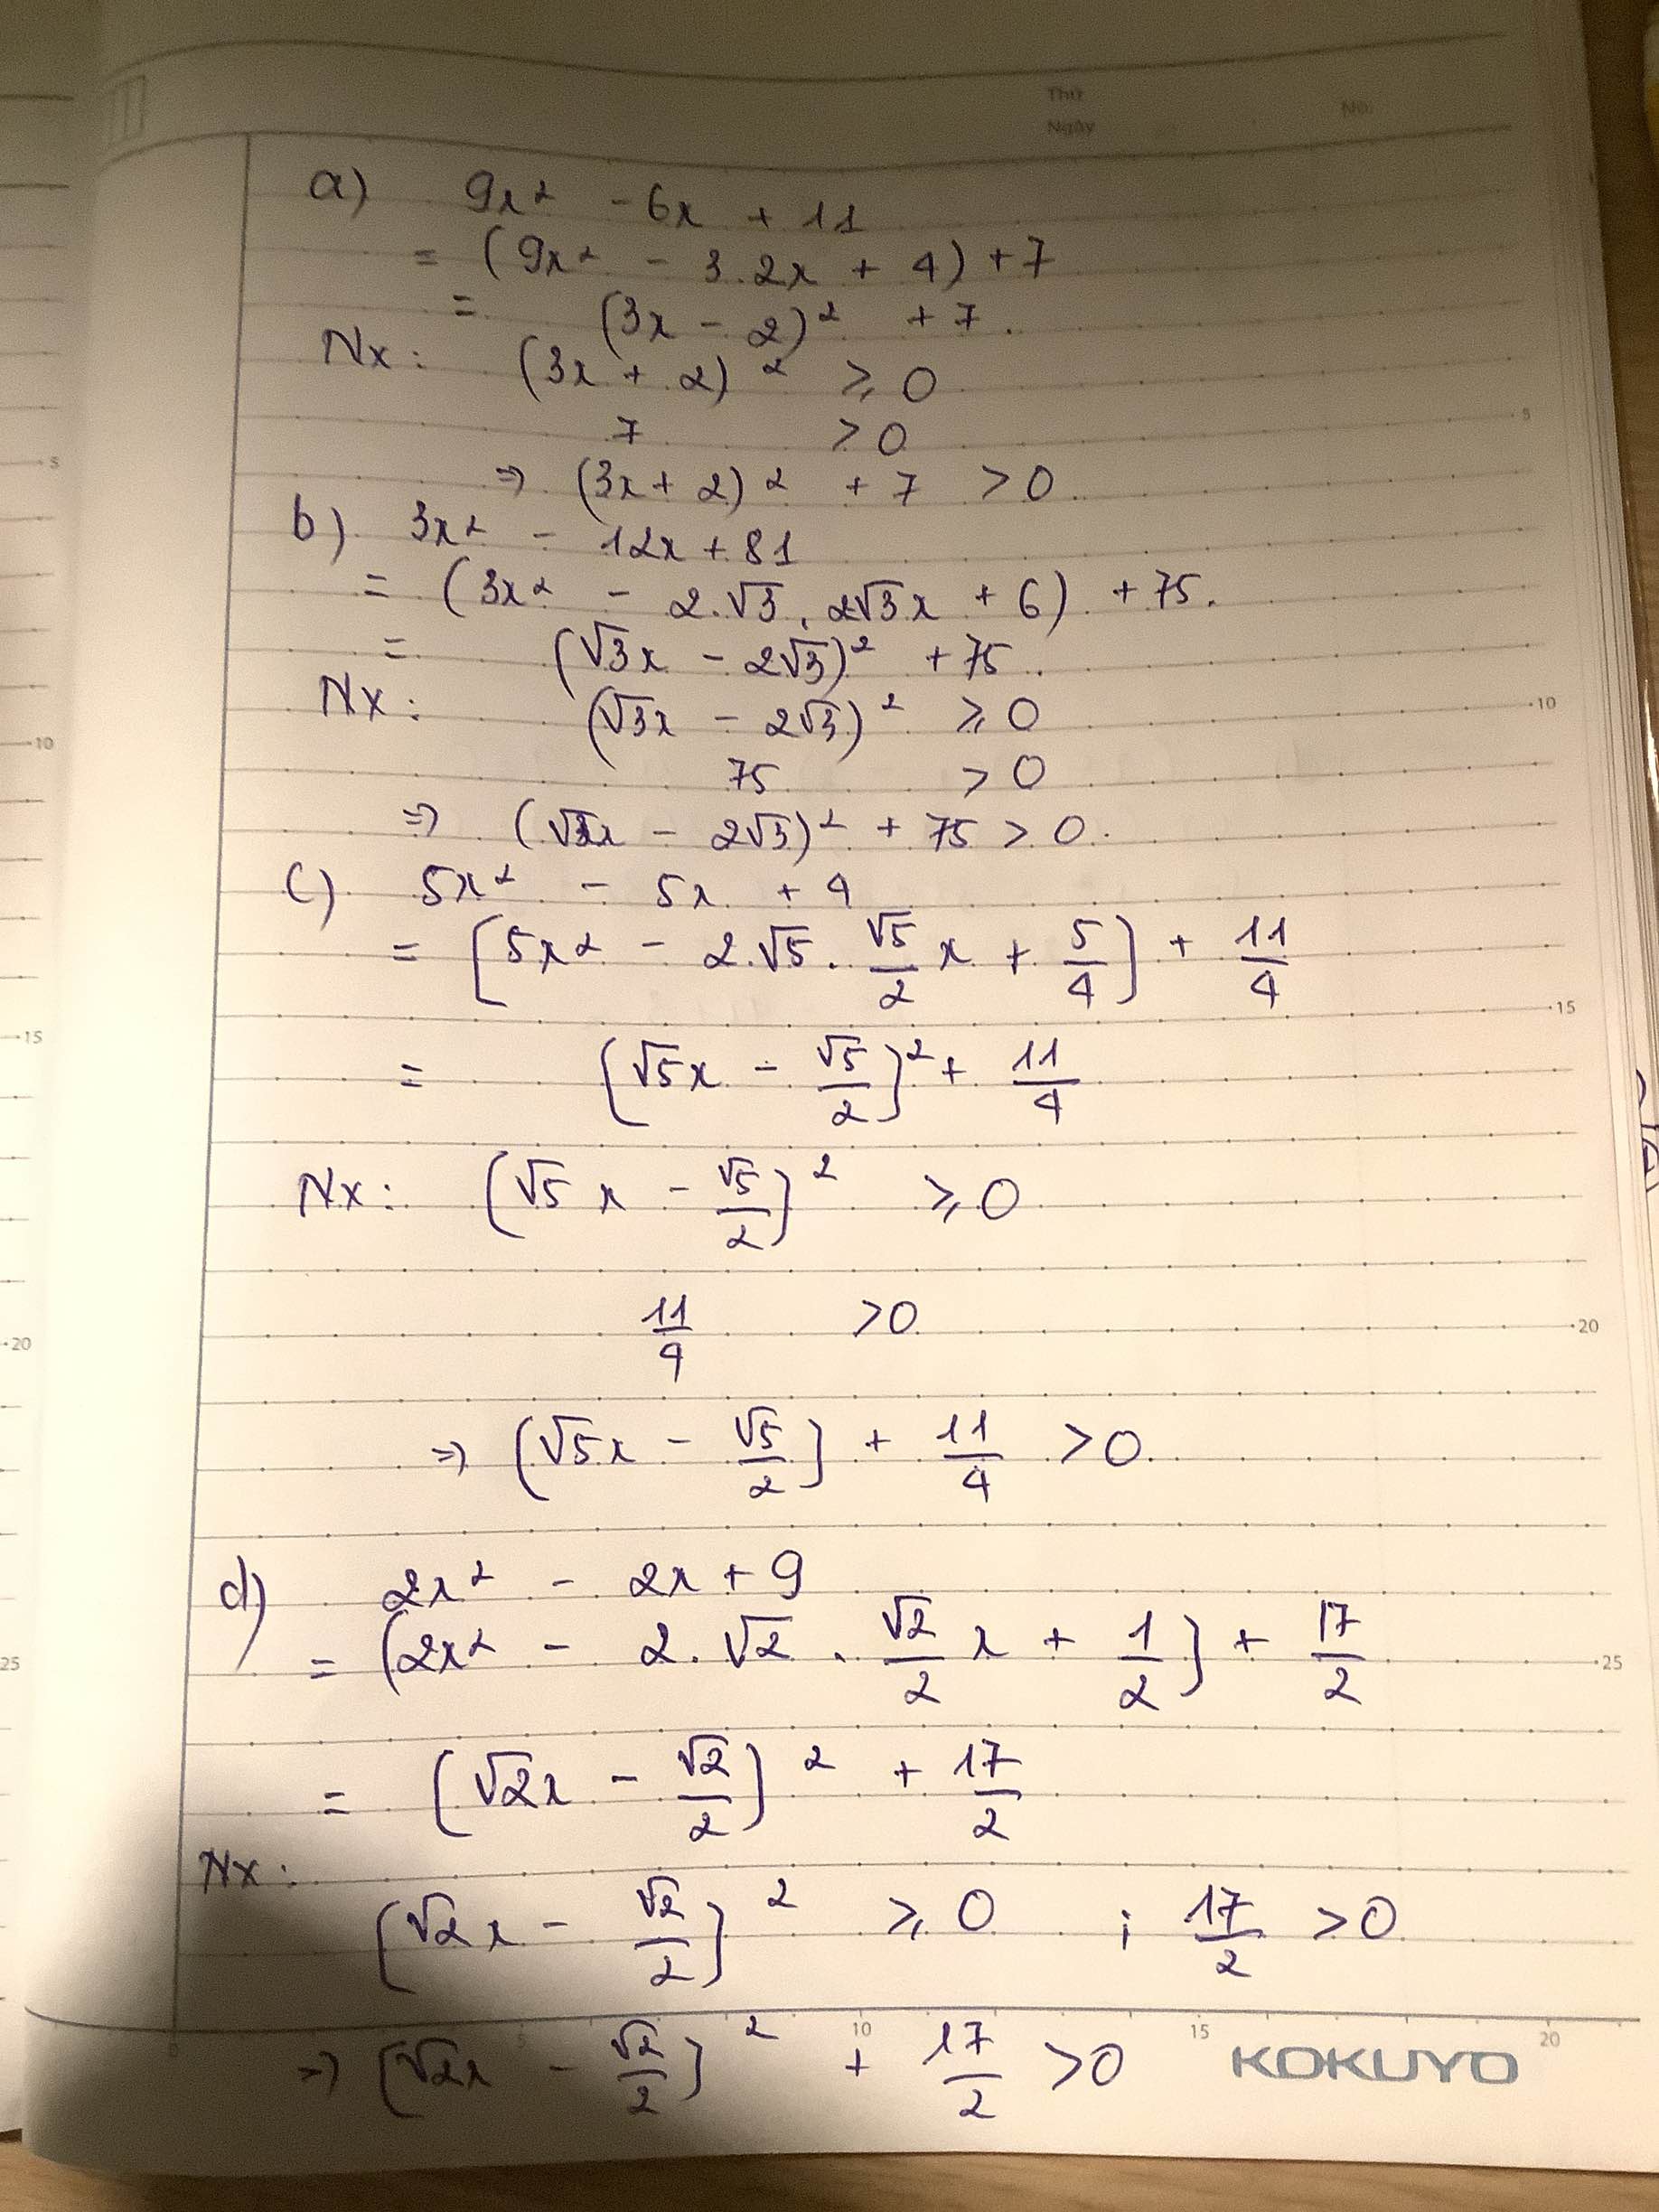 Thứ
Ngày
No.
a) 9x² - 6x + 11
= (9x² - 3.2x + 4) + 7
= (3x - 2)² + 7.
Nx: (3x + 2)² ≥ 0
7 > 0
⇒ (3x + 2)² + 7 > 0
b) 3x² - 12x + 81
= (3x² - 2.√3.2√3x + 6) + 75.
= (√3x - 2√3)² + 75.
Nx: (√3x - 2√3)² ≥ 0
75 > 0
⇒ (√3x - 2√3)² + 75 > 0.
c) 5x² - 5x + 4
= [5x² - 2.√5.√5/2 x + 5/4] + 11/4
= (√5x - √5/2)² + 11/4
Nx: (√5x - √5/2)² ≥ 0
11/4 > 0
⇒ (√5x - √5/2) + 11/4 > 0
d) 2x² - 2x + 9
= (2x² - 2.√2.√2/2 x + 1/2) + 17/2
= (√2x - √2/2)² + 17/2
Nx:
(√2x - √2/2)² ≥ 0 ; 17/2 > 0
⇒ (√2x - √2/2)² + 17/2 > 0
5 10 15 20
KOKUYO
5
10
15
20
25
5
10
15
20
25